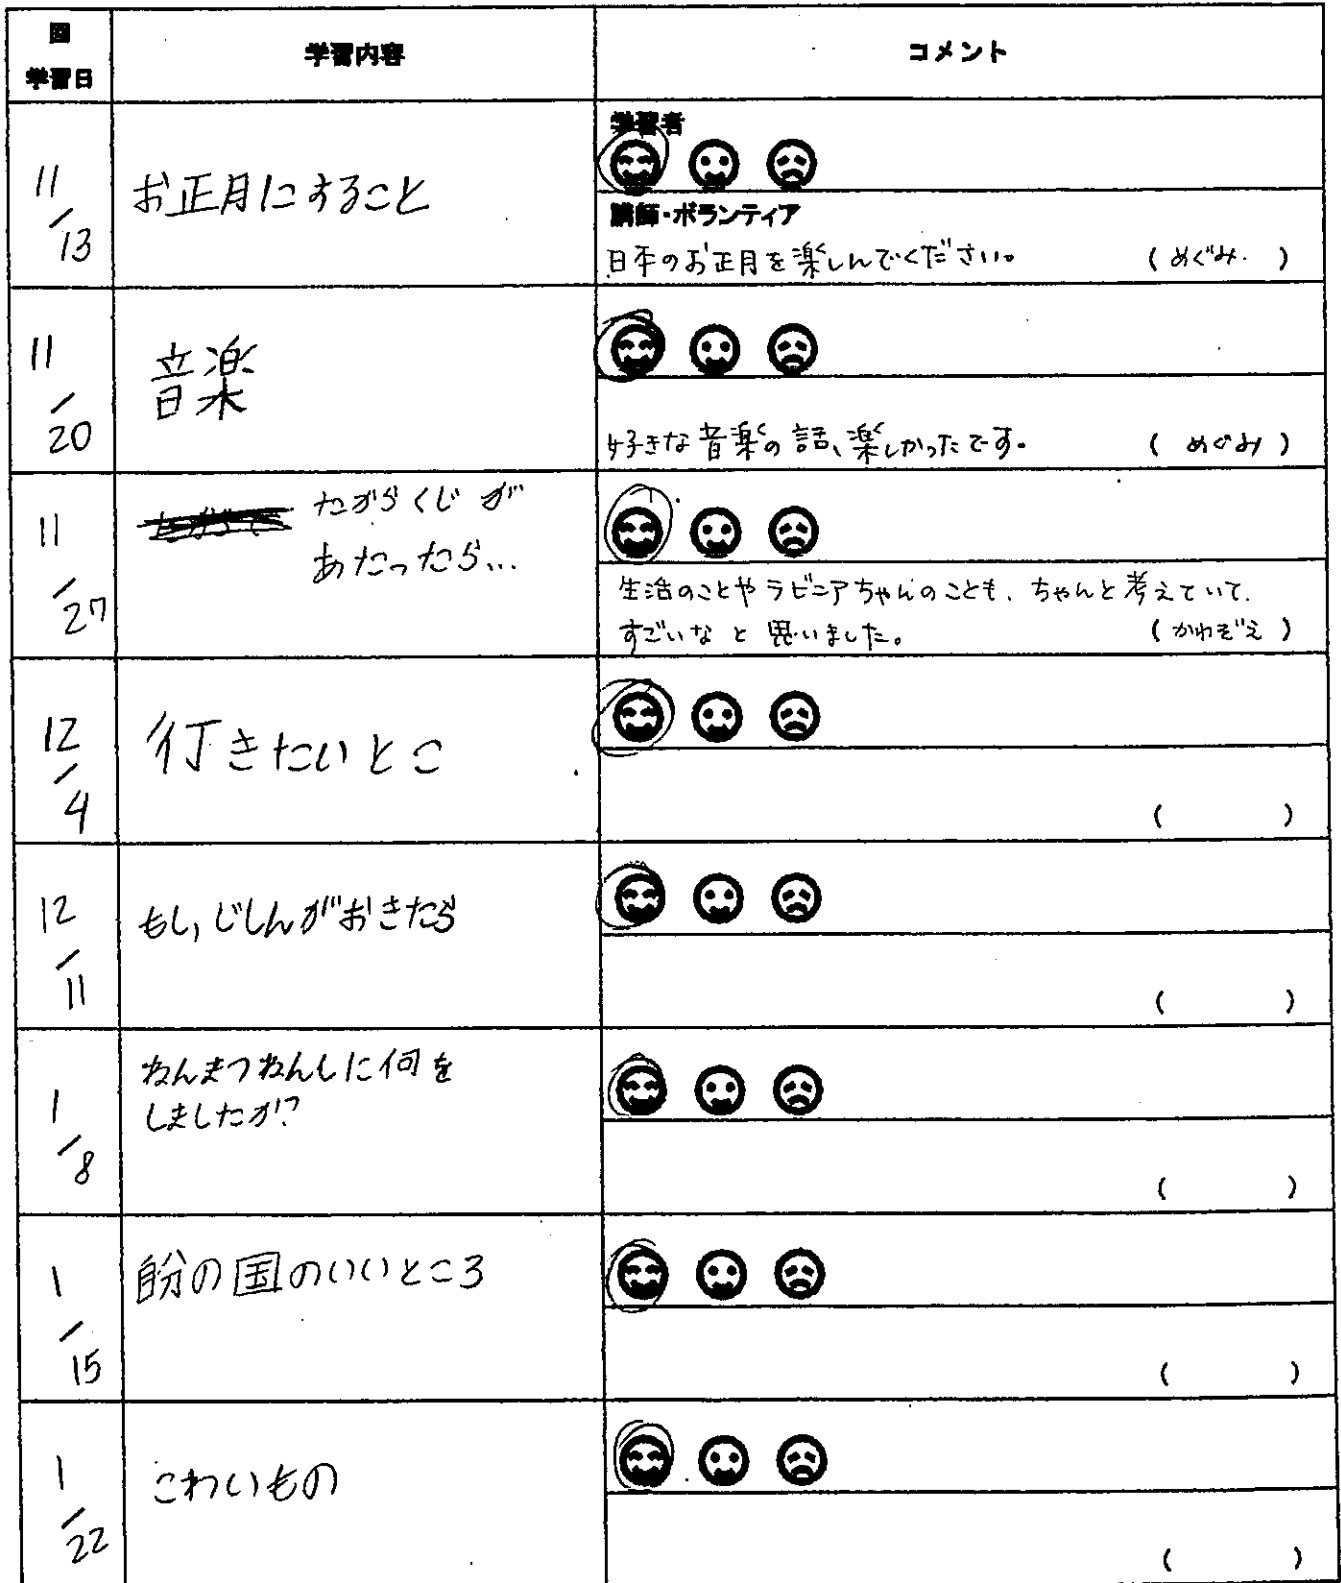 回
学習日
学習内容
コメント
11/13
お正月にすること
学習者
講師・ボランティア
日本のお正月を楽しんでください。 (めぐみ. )
11/20
音楽
好きな音楽の話、楽しかったです。 ( めぐみ )
11/27
たがらくじが
あたったら...
生活のことやラビニアちゃんのことも、ちゃんと考えていて、
すごいなと思いました。 (かわぞえ )
12/4
行きたいとこ
( )
12/11
もし,じしんがおきたら
( )
1/8
ねんまつねんしに何を
しましたか?
( )
1/15
自分の国のいいところ
( )
1/22
こわいもの
( )